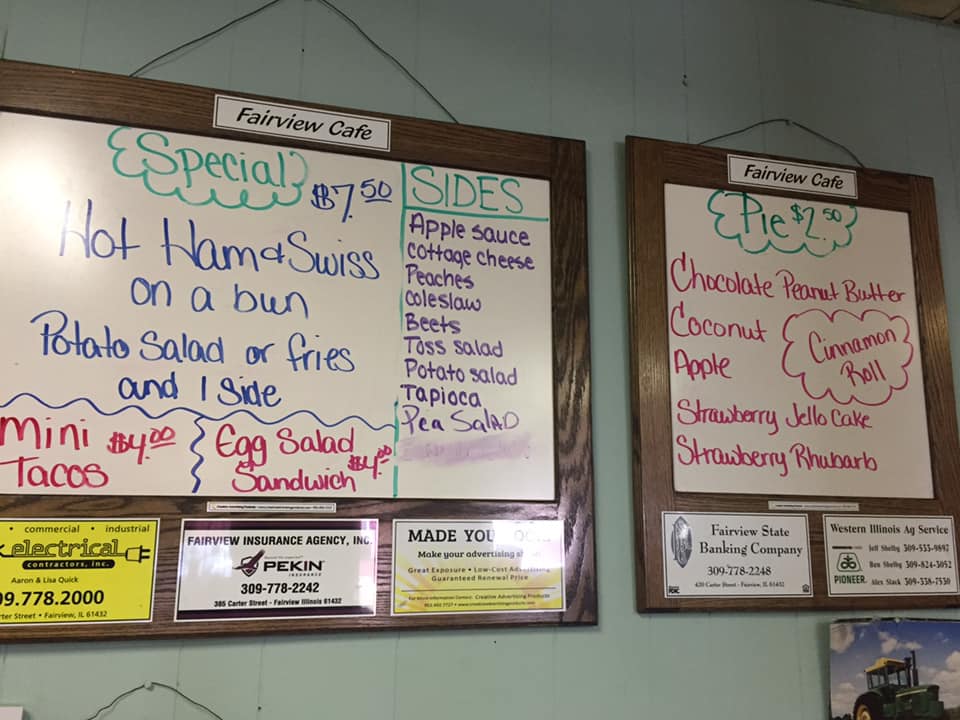 Fairview Cafe
Special
$7.50
Hot Ham & Swiss
on a bun
Potato Salad or fries
and 1 Side
Mini $4.00
Tacos
Egg Salad
Sandwich $4.00
SIDES
Apple sauce
Cottage cheese
Peaches
Coleslaw
Beets
Toss salad
Potato salad
Tapioca
Pea SalaD
commercial • industrial
electrical
contractors, inc.
Aaron & Lisa Quick
09.778.2000
rter Street • Fairview, IL 61432
FAIRVIEW INSURANCE AGENCY, INC.
PEKIN
INSURANCE
309-778-2242
385 Carter Street - Fairview Illinois 61432
MADE YOU
Make your advertising
Great Exposure • Low-Cost Advertising
Guaranteed Renewal Price
Creative Advertising Products
Fairview Cafe
Pie $2.50
Chocolate Peanut Butter
Coconut
Apple
Cinnamon
Roll
Strawberry Jello Cake
Strawberry Rhubarb
Fairview State
Banking Company
309-778-2248
420 Carter Street - Fairview, IL 61432
FDIC
Western Illinois Ag Service
Jeff Shelby 309-333-9897
Ben Shelby 309-824-3052
Alex Stack 309-338-7530
PIONEER.